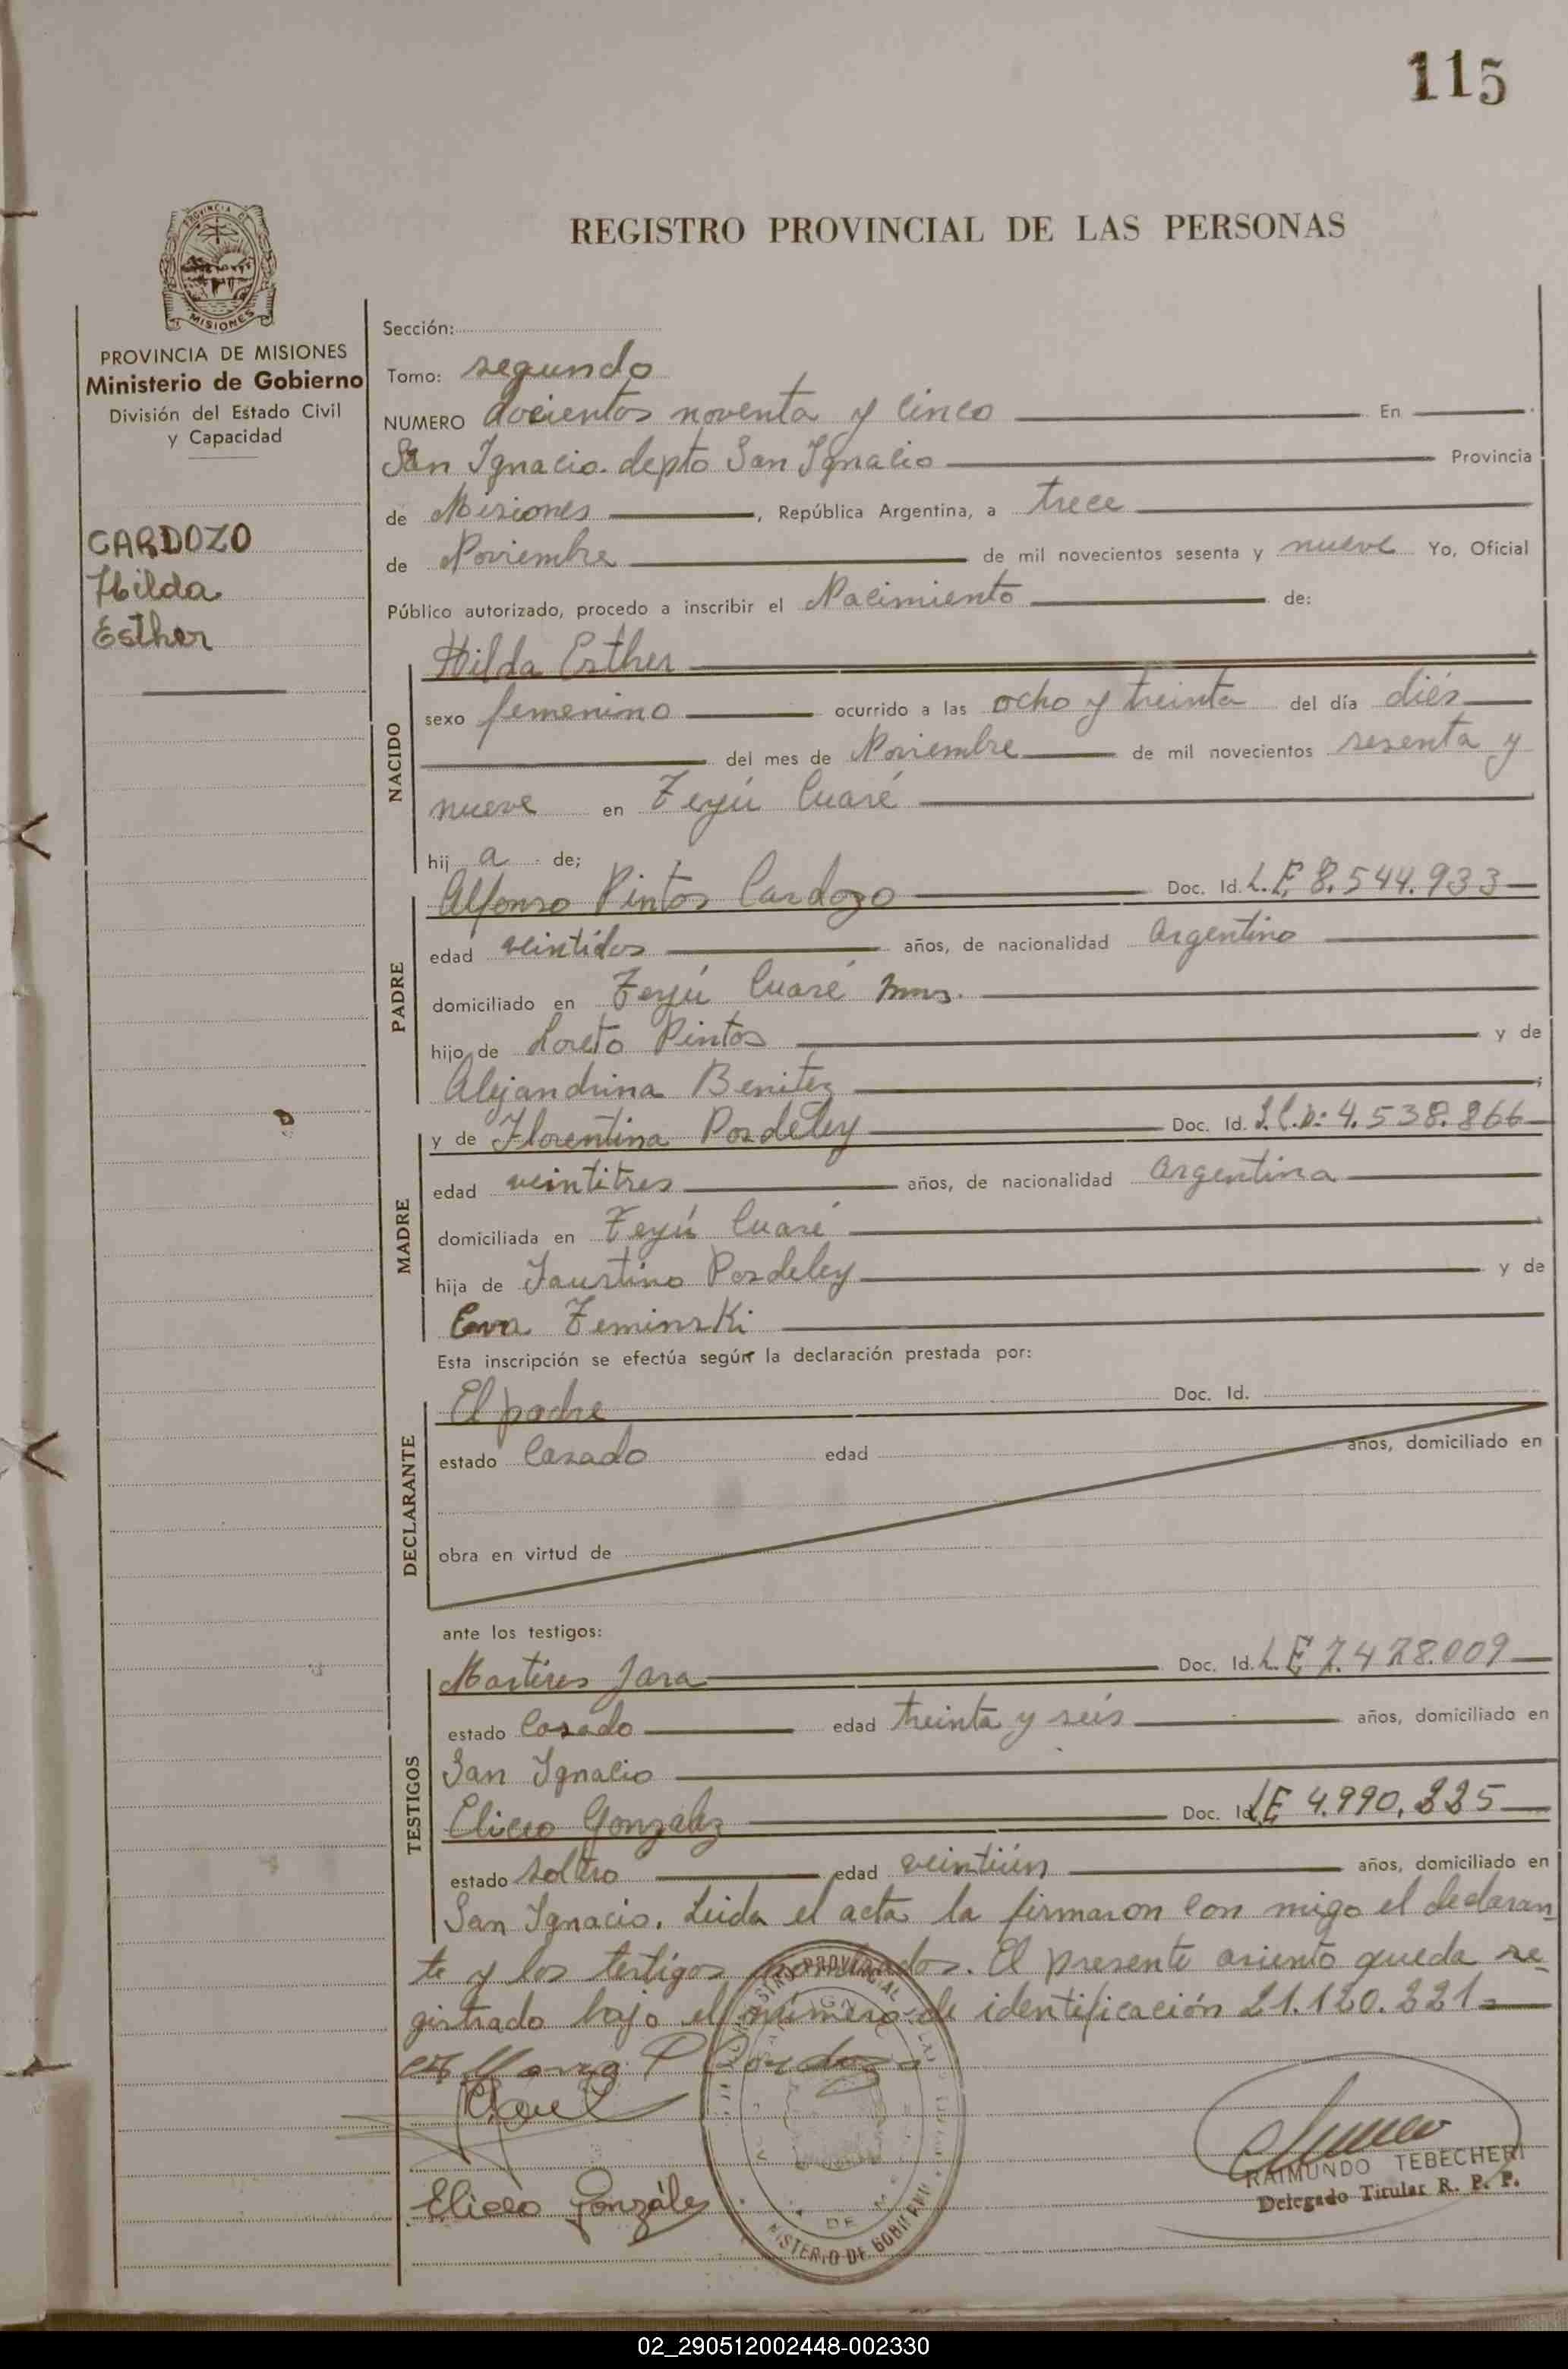 115
REGISTRO PROVINCIAL DE LAS PERSONAS
PROVINCIA DE
MISIONES
PROVINCIA DE MISIONES
Ministerio de Gobierno
División del Estado Civil
y Capacidad
CARDOZO
Hilda
Esther
Sección:
Tomo: segundo
NUMERO docientos noventa y cinco En
San Ignacio. depto San Ignacio Provincia
de Misiones, República Argentina, a trece
de Noviembre de mil novecientos sesenta y nueve Yo, Oficial
Público autorizado, procedo a inscribir el Nacimiento de:
NACIDO
Hilda Esther
sexo femenino ocurrido a las ocho y treinta del día diés
del mes de Noviembre de mil novecientos sesenta y
nueve en Teyú Cuaré
hij a de;
PADRE
Alfonso Pintos Cardozo Doc. Id. L.E. 8.544.933
edad veintidos años, de nacionalidad Argentino
domiciliado en Teyú Cuaré Mnes.
hijo de Loreto Pintos y de
Alejandrina Benitez;
MADRE
y de Florentina Posdeley Doc. Id. 4.538.866
edad veintitres años, de nacionalidad Argentina
domiciliada en Teyú Cuaré
hija de Faustino Posdeley y de
Eva Zeminski
Esta inscripción se efectúa según la declaración prestada por:
DECLARANTE
El padre Doc. Id.
estado Casado edad años, domiciliado en
obra en virtud de
ante los testigos:
TESTIGOS
Martires Jara Doc. Id. L.E 7.478.009
estado Casado edad treinta y seis años, domiciliado en
San Ignacio
Eliceo Gonzalez Doc. Id. LE 4.990.225
estado soltro edad veintiún años, domiciliado en
San Ignacio. Leida el acta la firmaron con migo el declaran
te y los testigos nombrados. El presente asiento queda re-
gistrado bajo el número de identificación 21.120.221=
Eliceo Gonzáles
REGISTRO PROVINCIAL
MINISTERIO DE GOBIERNO
RAIMUNDO TEBECHERI
Delegado Titular R. P. P.
02_290512002448-002330